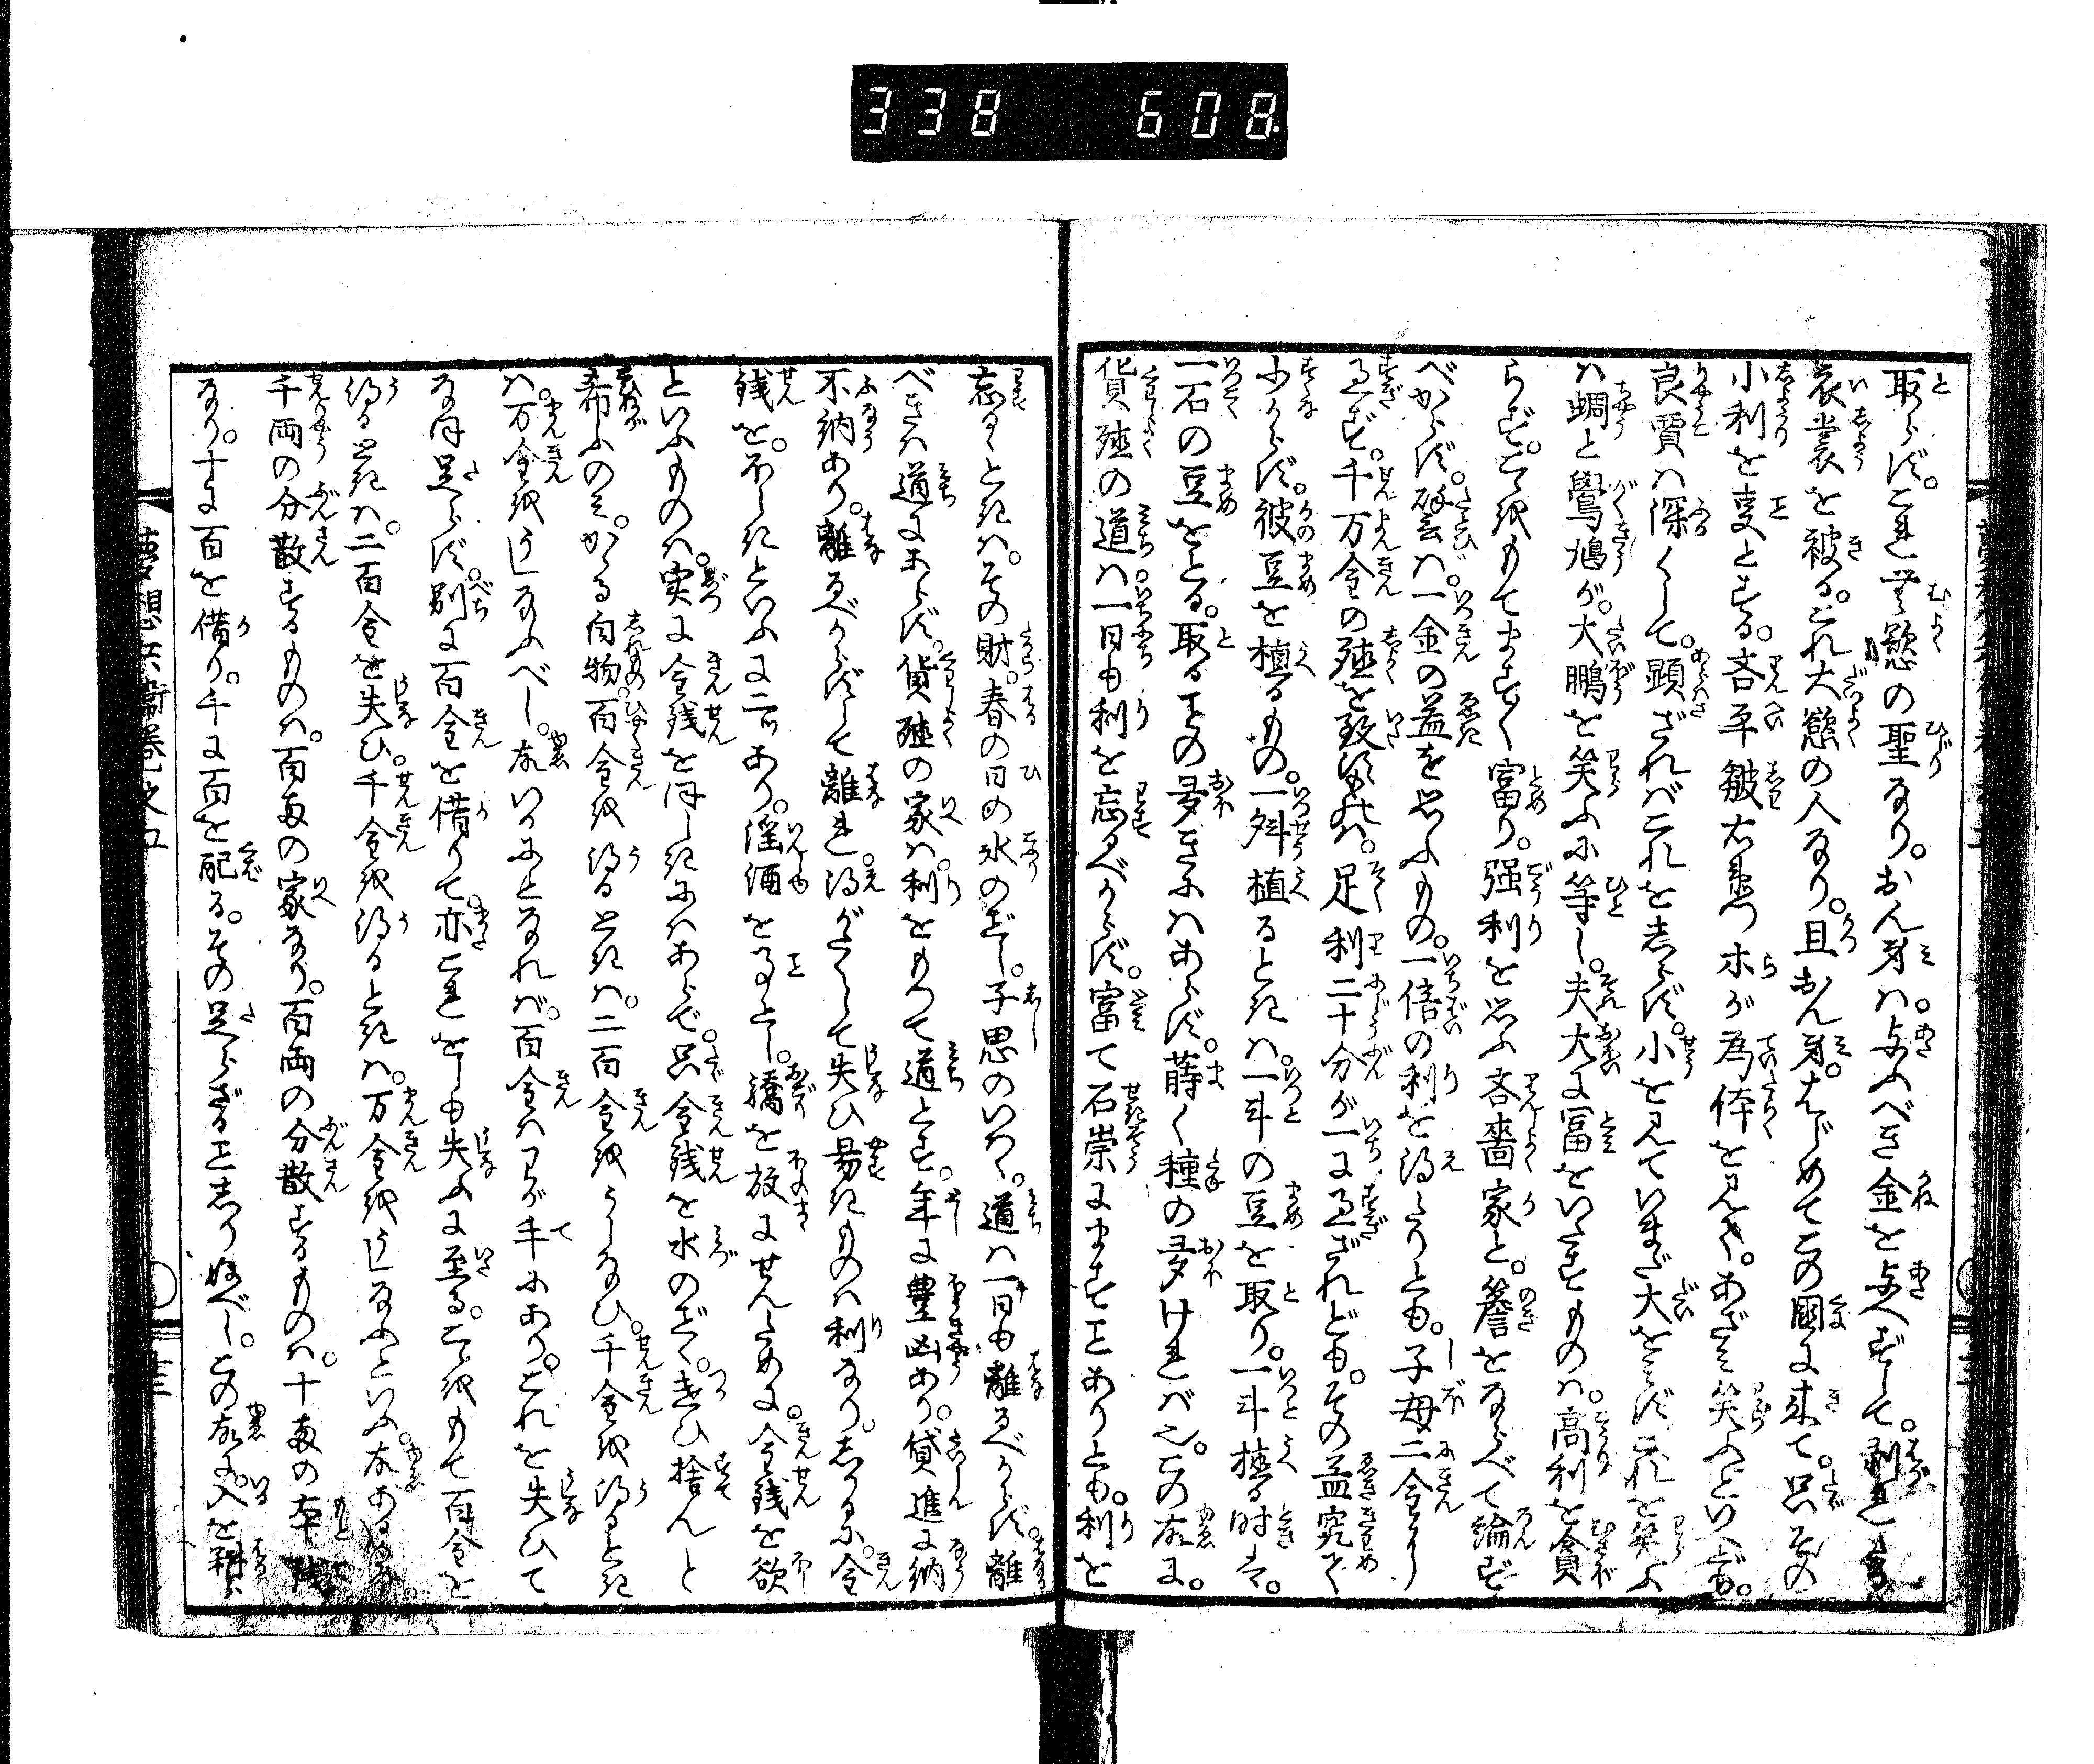 338 608
取らず。これ無慾の聖なり。おん身は。与ふべき金を与へずして。剥
衣裳を被る。これ大慾の人なり。且おん身はじめてこの國に来て。只その
小利を憂とする。吝平皺右衛門が為体を見て。あざみ笑ふといへども。
良賈は深くして。顕ざればこれをしらず。小を見ていまだ大をみずこれを笑ふ
は蜩と鷽鳩が。大鵬を笑ふに等し。夫大に富をいたすものは。高利を貪
らず。こゝをもてますます富り。强利を思ふ吝嗇家と。簷をならべて論ず
べからず。譬ば一金の益を思ふもの。一倍の利を得たりとも。子母二金に
過ず。千万金の殖を致すものは。足利二十分が一に過ざれども。その益究て
少からず。彼豆を植るもの。一斛植るときは一斗の豆を取り。一斗植る時は。
一石の豆をとる。取ることの多きにはあらず。蒔く種の多ければ也。この故に。
貨殖の道は一日も利を忘るべからず。富て石崇にますことありとも。利を
忘るゝときは。その財。春の日の氷のごとし。子思のいはく。道は一日も離るべからず。離る
べきは道にあらず。貨殖の家は。利をもつて道とす。年に豊凶あり。貸進に納
不納あり。離るべからずして離れ。得がたくして失ひ易きものは利なり。しかるに。金
銭を。ほしきといふに二ツあり。淫酒を事とし。驕を放にせんために。金銭を欲
といふものは。実に金銭をほしきにはあらで。只金銭を水のごとく。遣ひ捨んと
希ふのみ。かゝる白物百金を得るときは。二百金をうしなひ。千金を得るとき
は。万金をうしなふべし。故いかにとなれば。百金はわが手にあり。これを失ひて
なほ足らず。別に百金を借りて。亦これをしも失ふに至る。こゝをもて百金を
得るときは。二百金を失ひ。千金を得るときは。万金をうしなふといふ。故あるかな。
千両の分散するものは。百両の家なり。百両の分散するものは。十両の本銭
なり。十に百を借り。千に百を配る。その足らざることしりぬべし。この故に。入を料
夢想兵衛巻之五